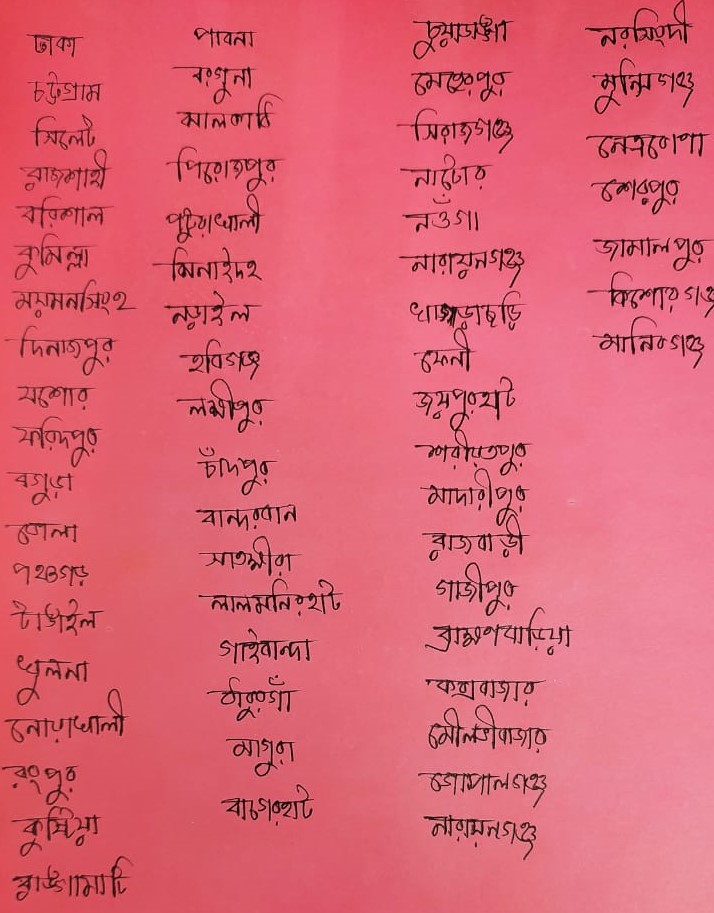 ঢাকা
চট্টগ্রাম
সিলেট
রাজশাহী
বরিশাল
কুমিল্লা
ময়মনসিংহ
দিনাজপুর
যশোর
ফরিদপুর
বগুড়া
ভোলা
পঞ্চগড়
টাঙাইল
খুলনা
নোয়াখালী
রংপুর
কুষ্টিয়া
রাঙ্গামাটি
পাবনা
বরগুনা
ঝালকাঠি
পিরোজপুর
পটুয়াখালী
ঝিনাইদহ
নড়াইল
হবিগঞ্জ
লক্ষীপুর
চাঁদপুর
বান্দরবান
সাতক্ষীরা
লালমনিরহাট
গাইবান্দা
ঠাকুরগাঁ
মাগুরা
বাগেরহাট
চুয়াডাঙ্গা
মেহেরপুর
সিরাজগঞ্জ
নাটোর
নওঁগা
নারায়নগঞ্জ
খাগড়াছড়ি
ফেনী
জয়পুরহাট
শরীয়তপুর
মাদারীপুর
রাজবাড়ী
গাজীপুর
ব্রাহ্মণবাড়িয়া
কক্সবাজার
মৌলভীবাজার
গোপালগঞ্জ
নারায়নগঞ্জ
নরসিংদী
মুন্সিগঞ্জ
নেত্রকোণা
শেরপুর
জামালপুর
কিশোরগঞ্জ
মানিকগঞ্জ